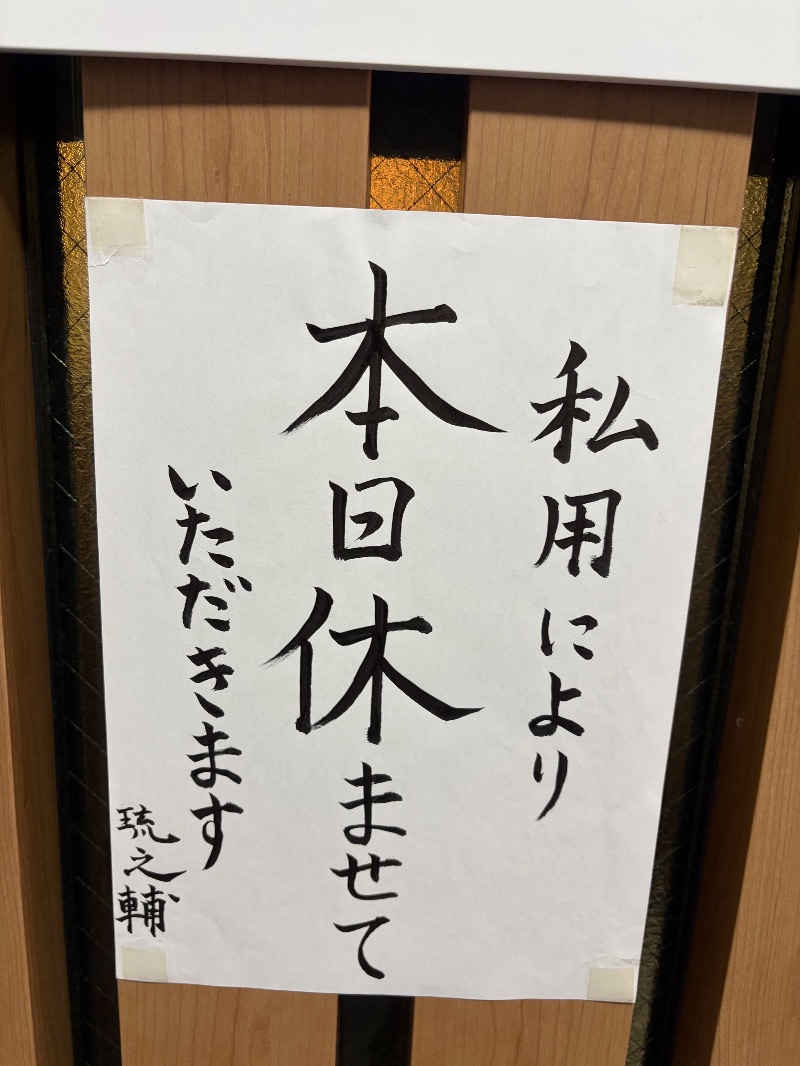 私用により
本日休ませて
いただきます
琉之輔